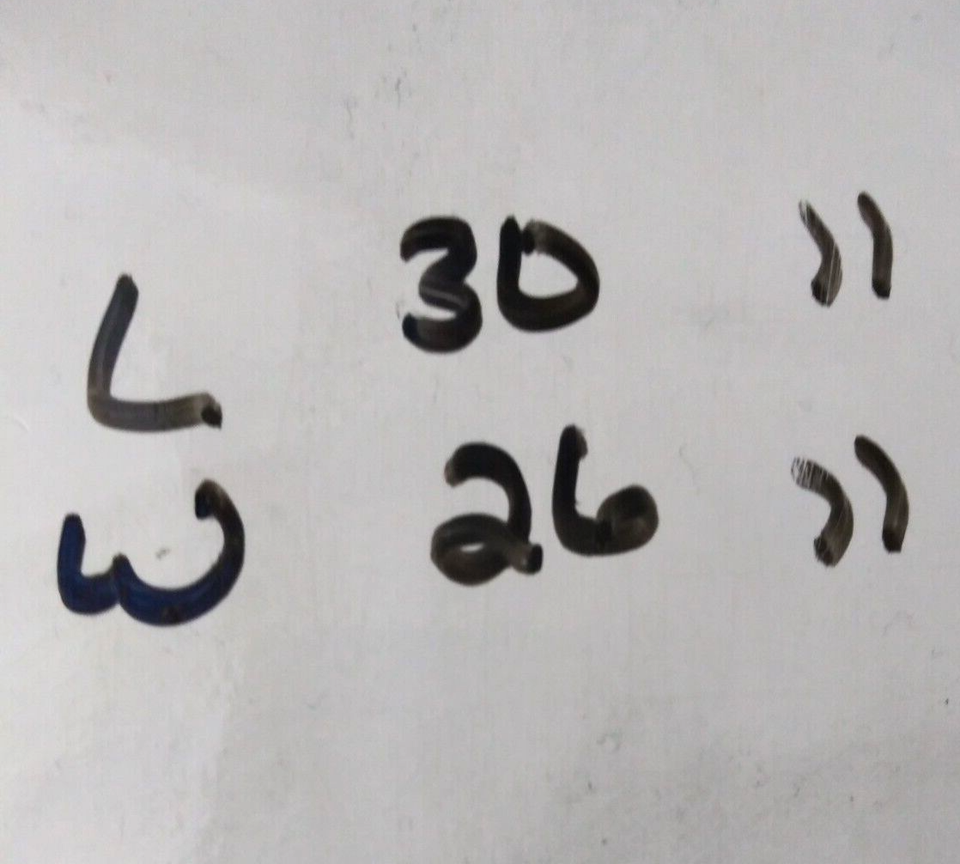 L 30 "
W 26 "